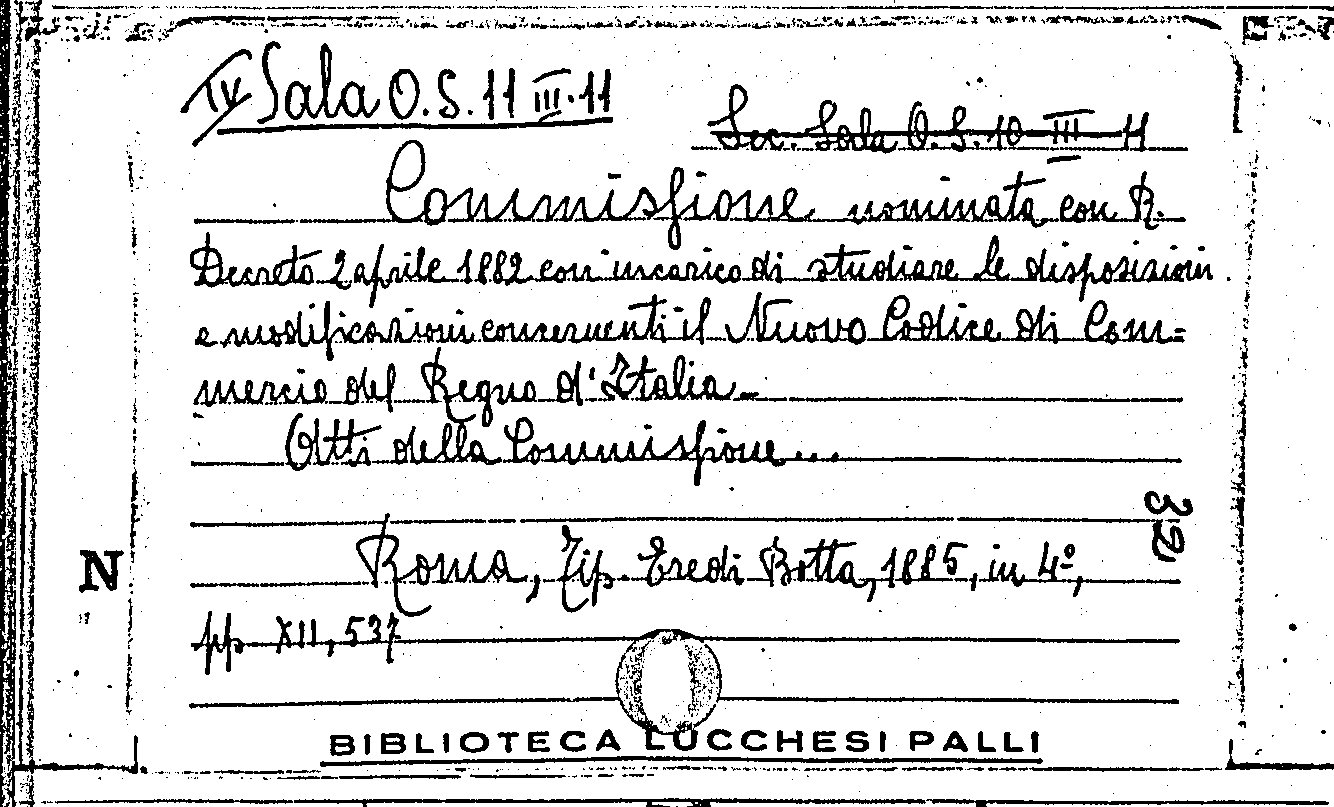 IV Sala O.S. 11 III. 11
Sec. Sala O.S. 10 III 11
Commissione nominata con R.
Decreto 2 aprile 1882 con incarico di studiare le disposizioni
e modificazioni concernenti il Nuovo Codice di Com=
mercio del Regno d'Italia.
Atti della Commissione...
32
Roma, Tip. Eredi Botta, 1885, in 4º,
pp. XII, 537
N
BIBLIOTECA LUCCHESI PALLI